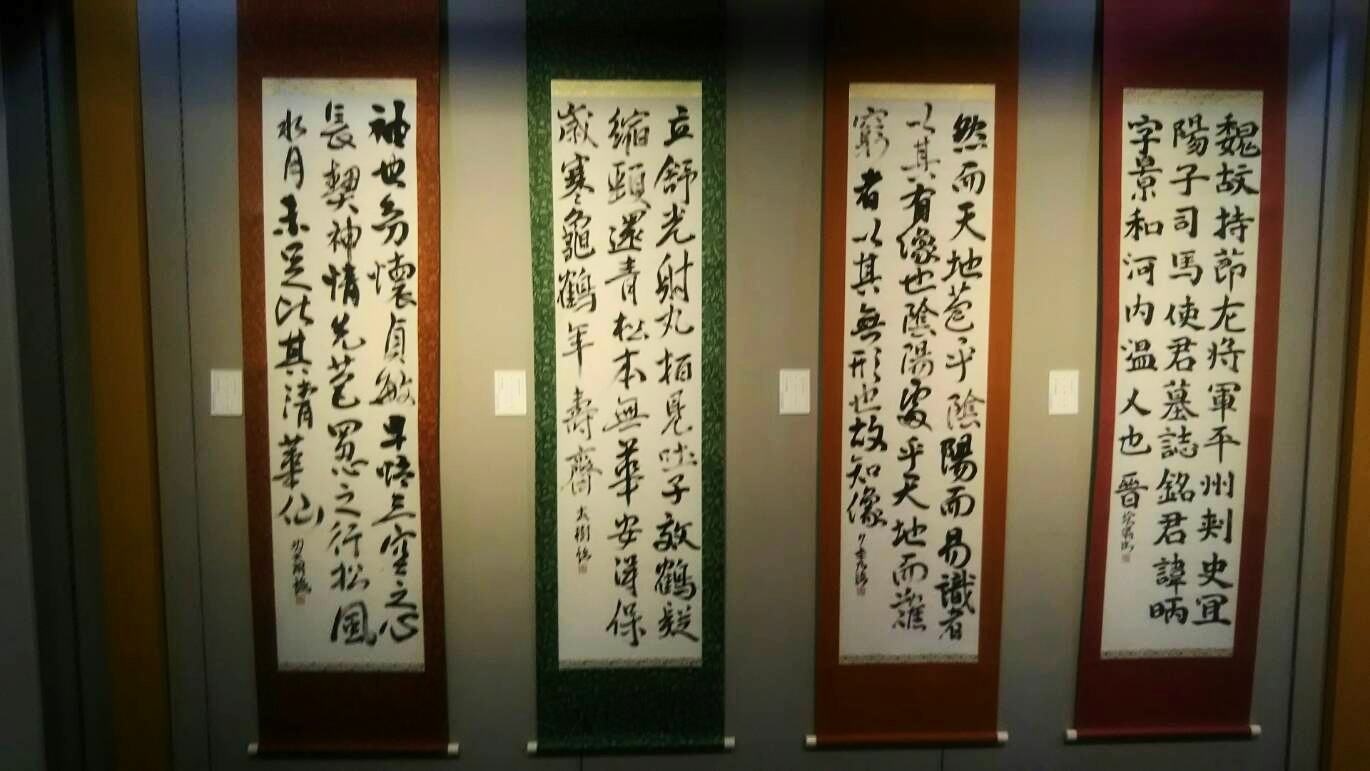 魏故持節左将軍平州刺史宜
陽子司馬使君墓誌銘君諱昞
字景和河内温人也晋
然而天地苞乎陰陽而易識者
以其有像也陰陽處乎天地而難
窮者以其無形也故知像
立舒光射丸拍見吐子效鶴疑
縮頸還青松本無華安得保
歳寒龜鶴年壽齊 大樹
懷貞敏早悟三空之心
長契神情先苞四忍之行松風
水月未足比其清華仙